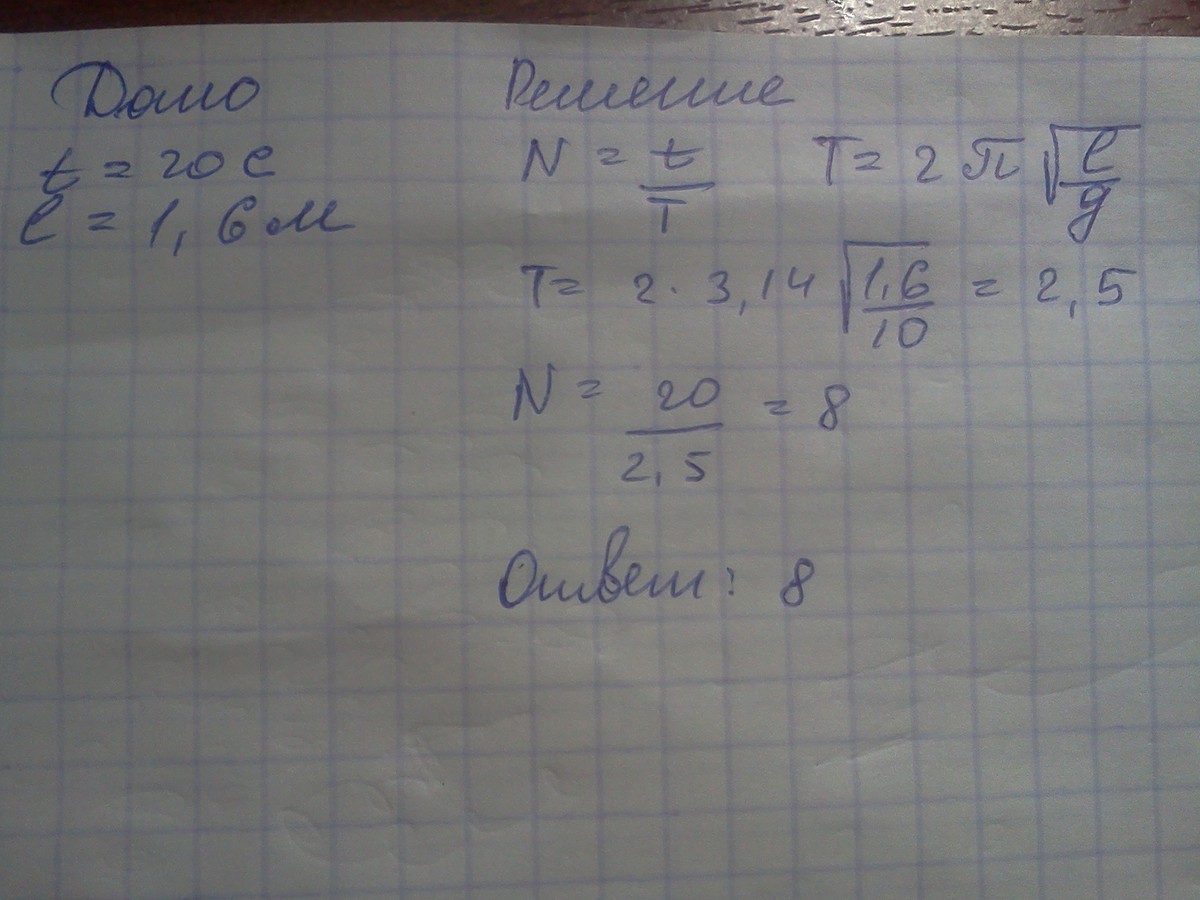 Дано
t = 20 с
l = 1,6 м
Решение
N = t/T T = 2π√(l/g)
T = 2 · 3,14 √(1,6/10) = 2,5
N = 20/2,5 = 8
Ответ: 8